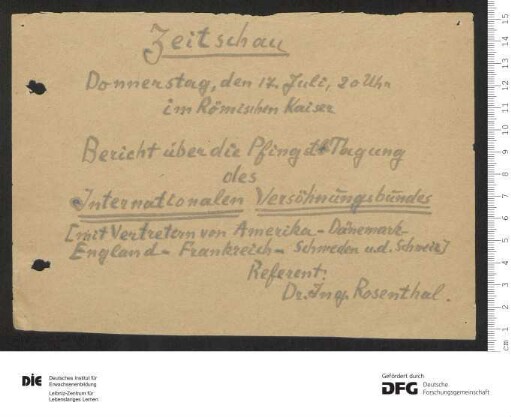 Zeitschau
Donnerstag, den 17. Juli, 20 Uhr
im Römischen Kaiser
Bericht über die Pfingst Tagung
des
Internationalen Versöhnungsbundes
[mit Vertretern von Amerika - Dänemark
England - Frankreich - Schweden u.d. Schweiz]
Referent:
Dr. Ing. Rosenthal.
cm 1 2 3 4 5 6 7 8 9 10 11 12 13 14 15
DIE Deutsches Institut für
Erwachsenenbildung
Leibniz-Zentrum für
Lebenslanges Lernen
Gefördert durch
DFG Deutsche
Forschungsgemeinschaft